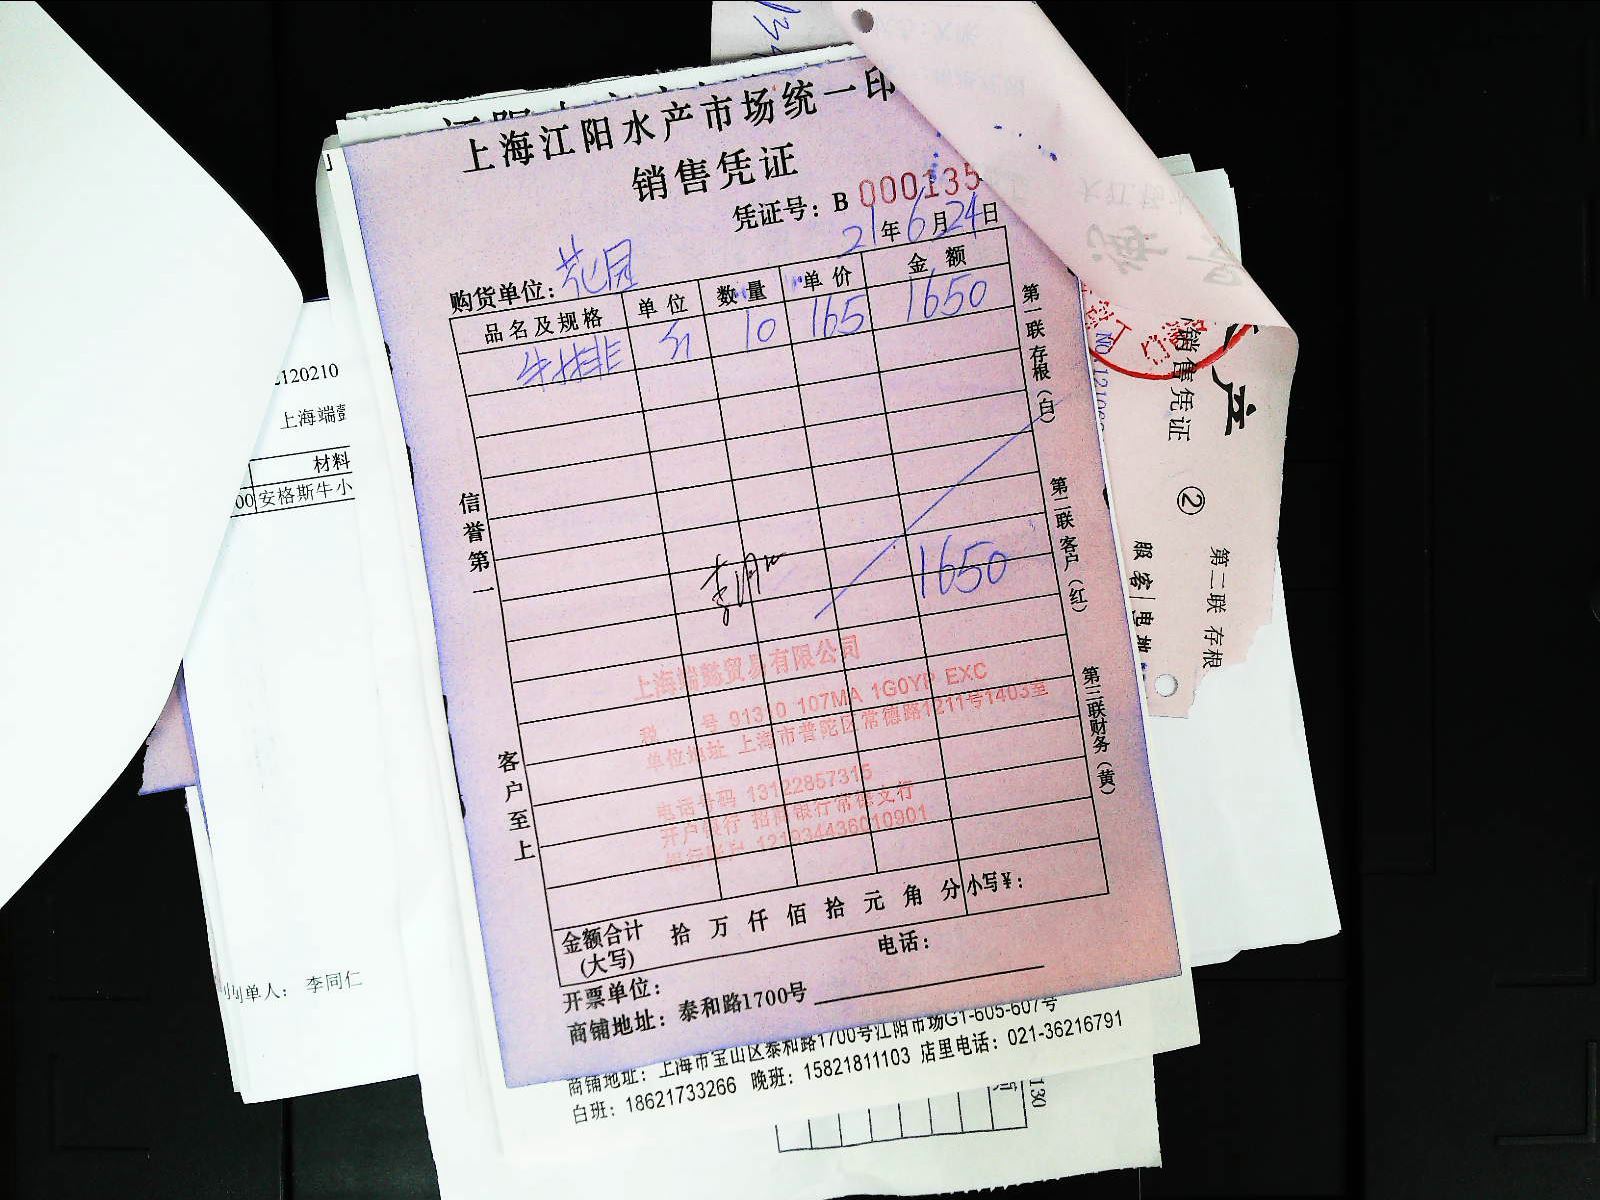 上海江阳水产市场统一印
销售凭证
凭证号: B 000135
21年6月24日
购货单位: 花园
品名及规格 单位 数量 单价 金额
牛排 10 165 1650
1650
信誉第一
客户至上
第一联 存根 (白)
第二联 客户 (红)
第三联 财务 (黄)
上海端懿贸易有限公司
税 号 91310 107MA 1G0YP EXC
单位地址 上海市普陀区常德路1211号1403室
电话号码 13122857315
开户银行 招商银行常德支行
银行账户 121934436010901
金额合计 拾 万 仟 佰 拾 元 角 分 小写¥:
(大写)
电话:
开票单位:
商铺地址: 泰和路1700号
商铺地址: 上海市宝山区泰和路1700号江阳市场G1-605-607号
白班: 18621733266 晚班: 15821811103 店里电话: 021-36216791
2120210
上海端
材料
00 安格斯牛小
制单人: 李同仁
产
销售凭证
②
第二联 存根
130